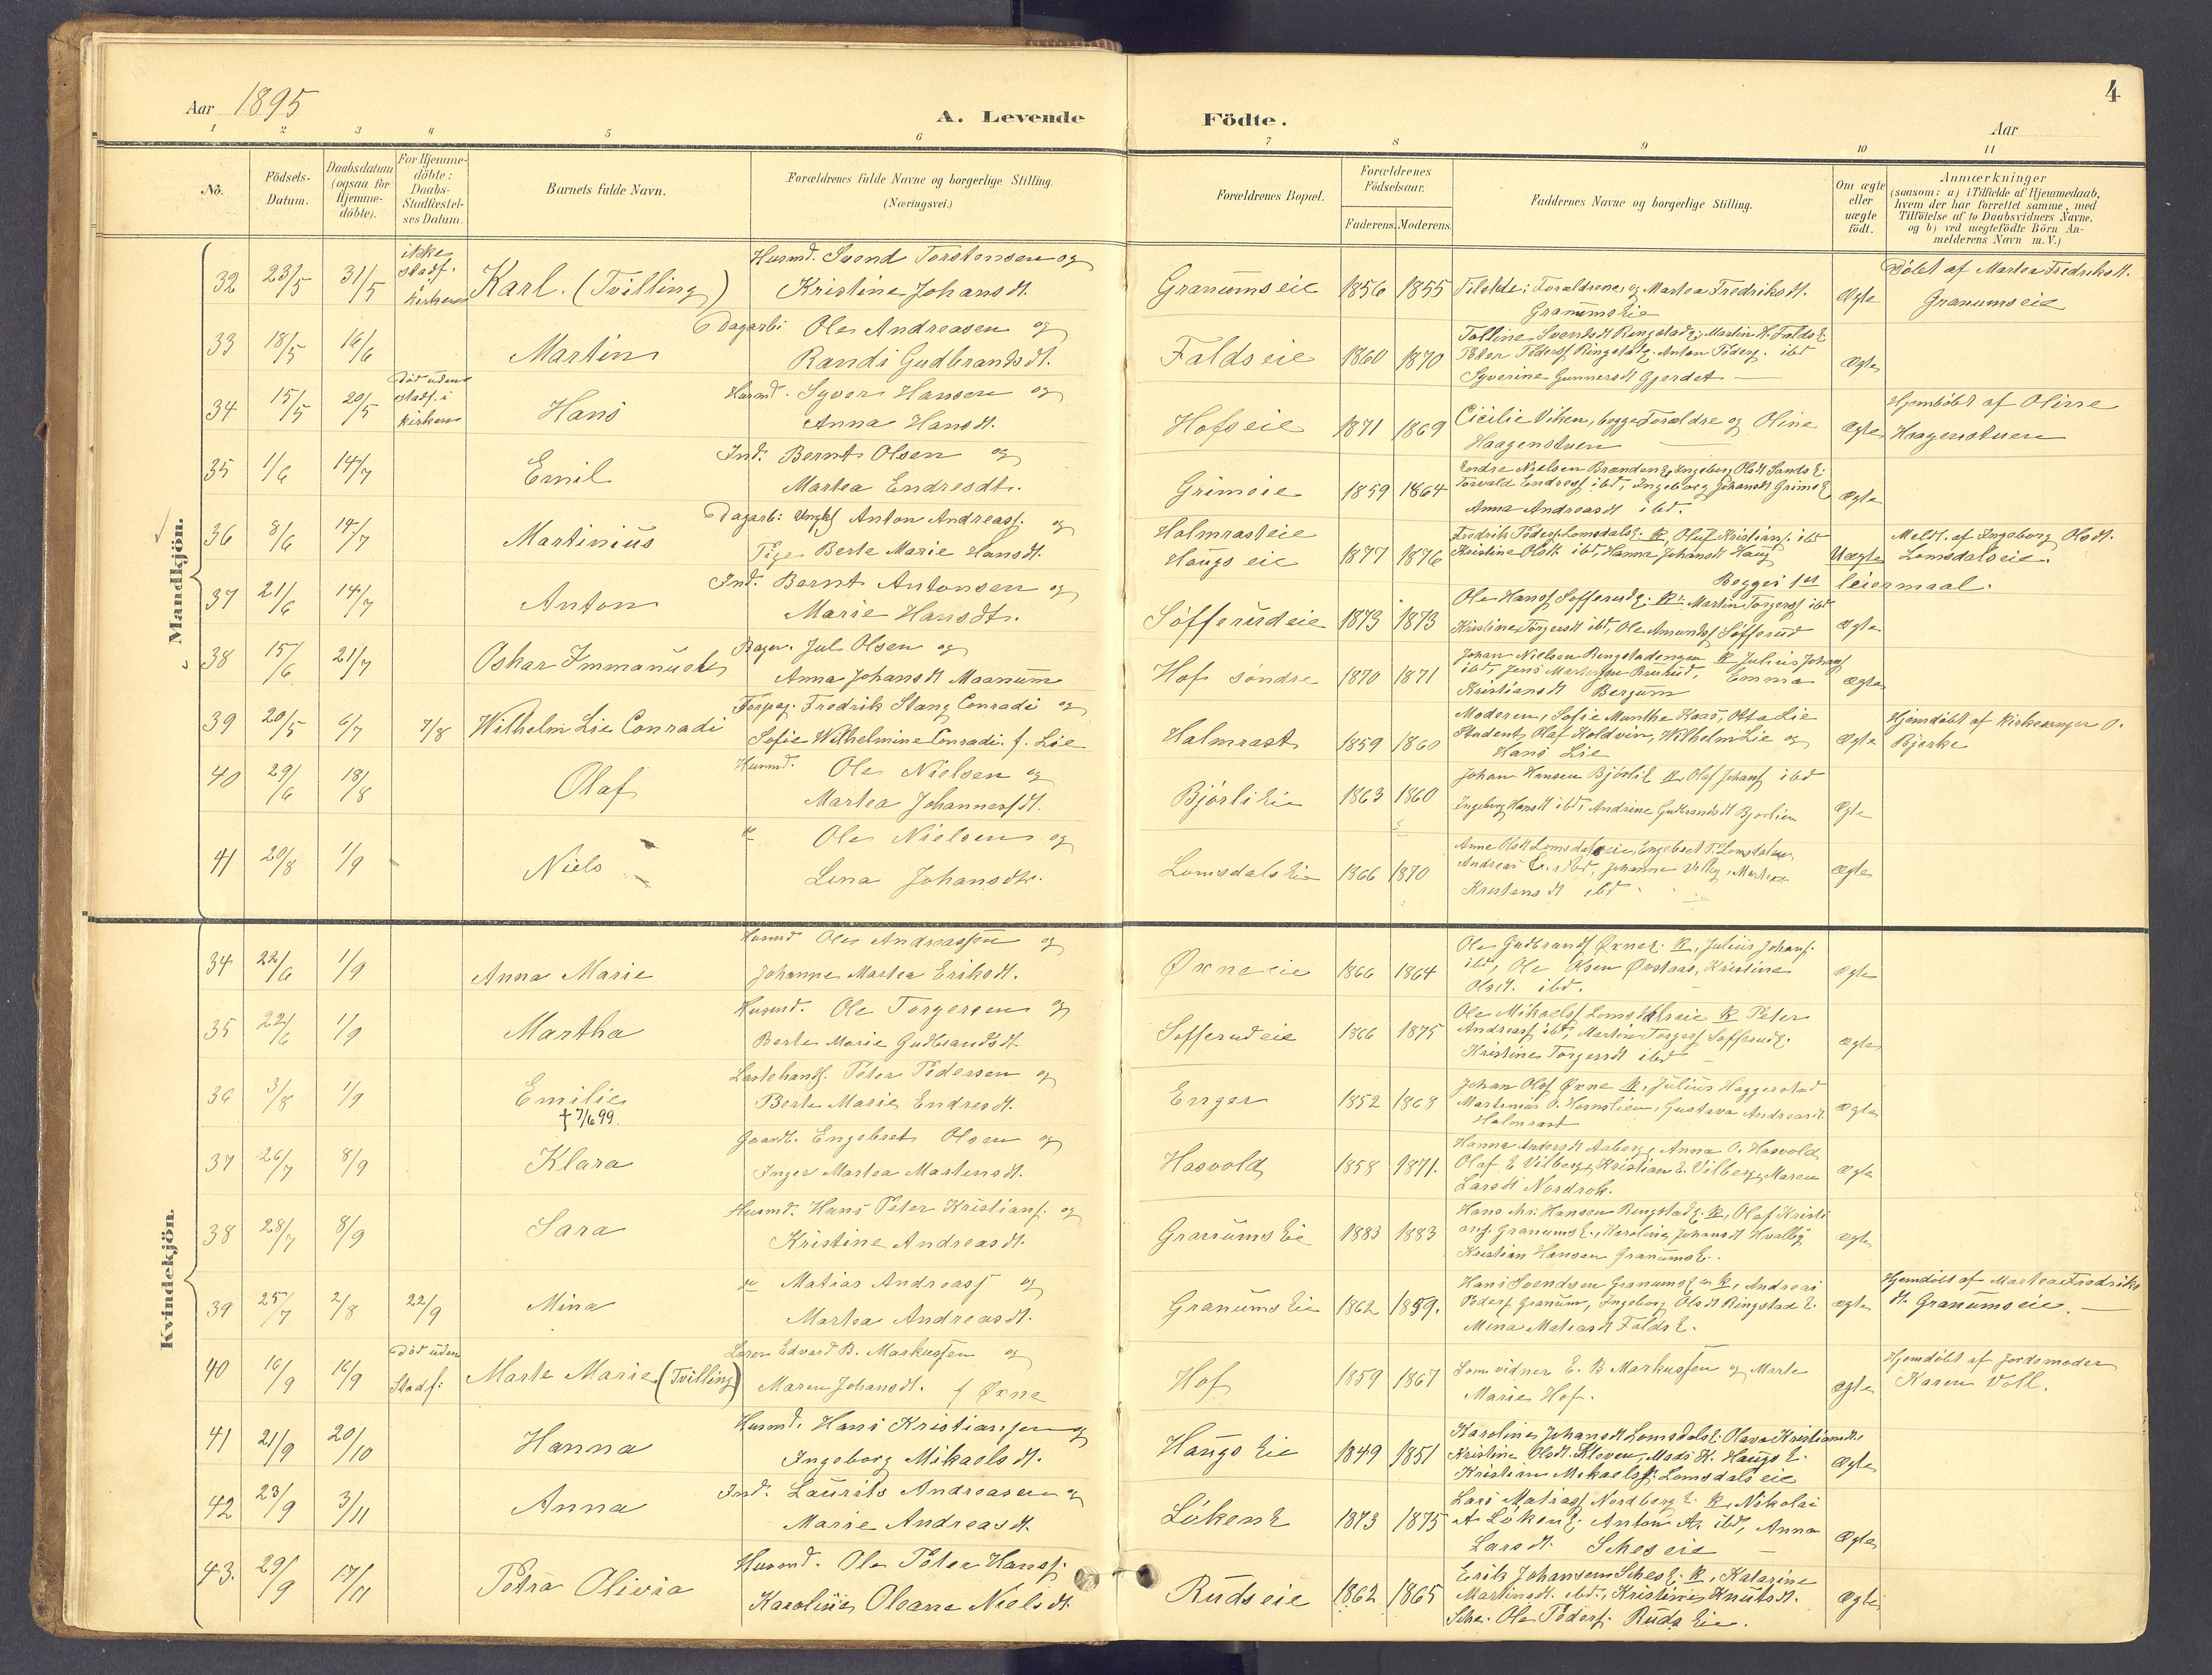 Aar 1895
A. Levende
Födte.
Aar
4
1 2 3 4 5 6 7 8 9 10 11
No.
Födsels-
Datum.
Daabsdatum
(ogsaa för
Hjemme-
döbte).
For Hjemme-
döbte:
Daabs-
Stadfæstel-
ses Datum.
Barnets fulde Navn.
Forældrenes fulde Navne og borgerlige Stilling.
(Næringsvei.)
Forældrenes Bopæl.
Forældrenes
Födselsaar.
Faderens. Moderens.
Faddernes Navne og borgerlige Stilling.
Om ægte
eller
uægte
födt.
Anmærkninger
(saasom: a) i Tilfælde af Hjemmedaab,
hvem der har forrettet samme, med
Tilföielse af to Daabsvidners Navne.
og b) ved uægtefödte Börn An-
melderens Navn m. V.)
Mandkjön.
32 23/5 31/5
ikke
stadf. i
kirken
Karl. (Tvilling)
Husmd. Svend Torstensen og
Kristine Johansdt.
Granumseie 1856 1855
Tilstede: Forældrene og Martea Fredriksdt.
Granumseie
Ægte
Døbt af Martea Fredriksdt.
Granumseie
33 18/5 16/6
Martin
Dagarb: Ole Andreasen og
Randi Gudbrandsdt.
Faldseie 1860 1870
Tolline Svendsdt Ringstade, Martin H. Falds E.
Peter Pedersf Ringstade. Anton Pedersf. ibd
Syverine Gunnersdt Gjerdet
Ægte
34 15/5 20/5
Död uden
stadf. i
kirken
Hans
Husmd. Syver Hansen og
Anna Hansdt.
Hofseie 1871 1869
Cicilie Viken, begge Forældre og Oline
Haagenstuen
Ægte
Hjemdöbt af Oline
Haagenstuen
35 1/6 14/7
Emil
Ind. Bernt Olsen og
Martea Endresdt.
Grimeie 1859 1864
Endre Nielsen Branden E, Ingeborg Olsdt Sands E.
Torvald Endresf ibd, Ingeborg Johansdt Grims E
Anna Andreasdt ibd.
Ægte
36 8/6 14/7
Martinius
Dagarb: Ungkf Anton Andreasf. og
Pige Berte Marie Hansdt.
Holmrasteie
Haugseie 1877 1876
Fredrik Pedersf Lomsdals E. K, Oluf Kristiansf. ibd
Kristine Olsdt ibd, Hanna Johansdt Haug
Begges 1st leiermaal.
Uægte
Meldt. af Ingeborg Olsdt.
Lomsdalseie.
37 21/6 14/7
Anton
Ind. Bernt Antonsen og
Marie Hansdt.
Søfferudeie 1873 1873
Ole Hansf Sofferud E. K. Martin Torgersf ibd
Kristine Torgersdt ibd, Ole Amundsf Søfferud
Ægte
38 15/6 21/7
Oskar Immanuel
Bager. Jul Olsen og
Anna Johansdt Maanum
Hof søndre 1870 1871
Johan Nielsen Ringstadengen K Julius Johansf
Kristiansdt Bergum
Ægte
39 20/5 6/7 7/8
Wilhelm Lie Conradi
Forpag. Fredrik Stang Conradi og
Sofie Wilhelmine Conradi. f. Lie
Holmrast 1859 1860
Moderen, Sofie Munthe Kaas, Otto Lie
Student, Olaf Holdvin, Wilhelm Lie og
Hans Lie
Ægte
Hjemdöbt af Kirkesanger O.
Bjerke
40 29/6 18/8
Olaf
Husmd. Ole Nielsen og
Martea Johannesfdt.
Bjørli Eie 1863 1860
Johan Hansen Bjørli E K Olaf Johansf ibd
Ingeborg Hansdt ibd, Andrine Gudbrandsdt Bjørlien
Ægte
41 20/8 1/9
Niels
do Ole Nielsen og
Lina Johansdt.
Lomsdals Eie 1866 1870
Anne Olsdt Lomsdalseie, Engebret P. Lomsdalen,
Kristensdt ibd
Ægte
Kvindekjön.
34 22/6 1/9
Anna Marie
Husmd Ole Andreassen og
Johanne Martea Eriksdt.
Øxneeie 1866 1864
Ole Gudbrandsf Øxne E. K, Julius Johansf.
ibd, Ole Olsen Øvstaas, Kristine
Olsdt. ibd.
Ægte
35 22/6 1/9
Martha
Husmd. Ole Torgersen og
Berte Marie Gudbrandsdt
Sofferudeie 1866 1875
Ole Mikaelsf Lomsdalseie K Peter
Andreasf ibd, Martin Torgersf Sofferud E.
Kristine Torgersdt ibd
Ægte
36 3/8 1/9
Emilie
† 7/6 99.
Lastehandf. Peter Pedersen og
Berte Marie Endresdt.
Enger 1852 1868
Johan Olsf Øxne K, Julius Haggerstad
Martinius O. Hornslien, Gustava Andreasdt.
Holmrast
Ægte
37 26/7 8/9
Klara
Gaardb. Engebret Olsen og
Inger Martea Martensdt.
Hasvold 1858 1871.
Hanna Andersdt Aaberg, Anna O. Hasvold
Olaf E Vilberg, Kristian E. Vilberg, Maren
Larsdt Nordrok.
Ægte
38 28/7 8/9
Sara
Husmd. Hans Peter Kristiansf. og
Kristine Andreasdt.
Granums Eie 1883 1883
Hans Chr: Hansen Ringstad E. K, Olaf Kristi
ansf. Granums E., Karoline Johansdt Hvalby
Kristian Hansen Granums E.
Ægte
39 25/7 2/8 22/9
Mina
do Matias Andreasf og
Martea Andreasdt.
Granums Eie 1862 1859.
Hans Svendsen Granums E K, Andreas
Pedersf Granum, Ingeborg Olsdt Ringstad E.
Mina Matiasdt Falds E.
Ægte
Hjemdöbt af Martea Fredriks
dt. Granumseie.
40 16/9 16/9
Död uden
Stadf:
Marte Marie (Tvilling)
Lærer Edvard B. Markussen og
Maren Johansdt. f Øxne
Hof 1859 1867
Som vidner E. B Markussen og Marte
Marie Hof.
Ægte
Hjemdöbt af Jordmoder
Karen Voll.
41 21/9 20/10
Hanna
Husmd. Hans Kristiansen og
Ingeborg Mikaelsdt.
Haugs Eie 1849 1851
Karoline Johansdt Lomsdals E. Olava Kristiansdt.
Kristine Olsdt. Kleven, Mads K. Haugs E.
Kristian Mikaelsf. Lomsdalseie
Ægte
42 23/9 3/11
Anna
Ind. Laurits Andreasen og
Marie Andreasdt.
Löken E 1873 1875
Lars Matiasf Nordberg E. K, Nikolai
A Löken E. Anton A. ibd, Anna
Larsdt. Scheseie
Ægte
43. 29/9 17/11
Petra Olivia
Husmd. Ole Peter Hansf.
Karoline Oleane Nielsdt.
Rudseie 1862 1865
Erik Johansen Sches E. K, Katarine
Martinsdt. ibd., Kristine Knutsdt.
Sche. Ole Pedersf. Ruds Eie.
Ægte